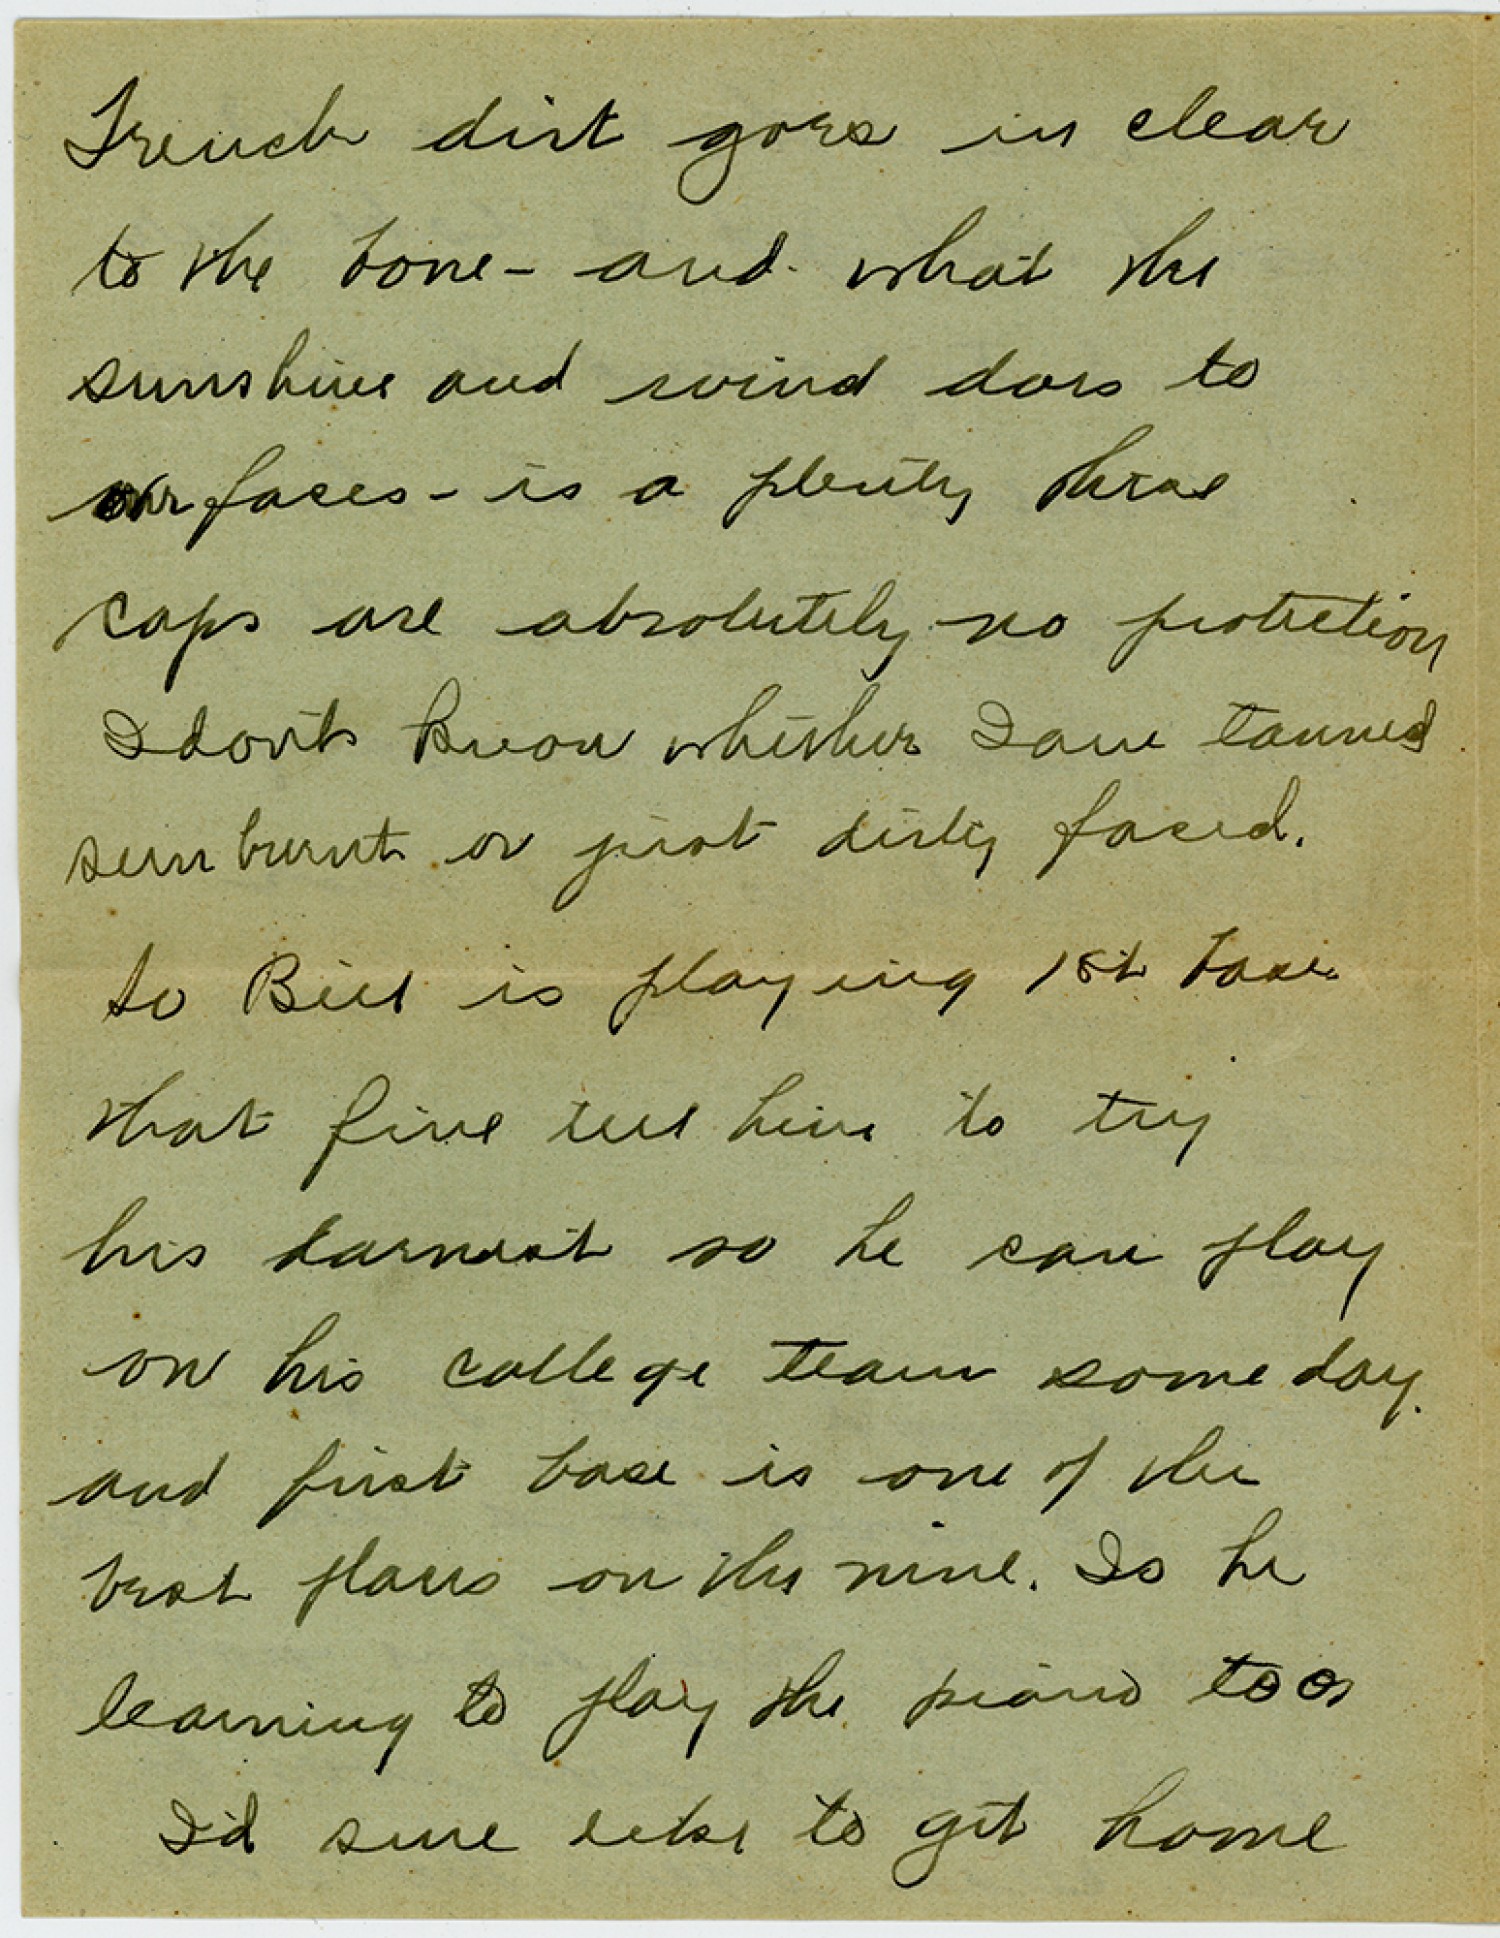 French dirt goes in clear
to the bone - and what the
sunshine and wind does to
our faces - is a plenty these
caps are absolutely no protection
I don't know whether I am tanned
sun burnt or just dirty faced.
So Bill is playing 1st base
that fine tell him to try
his darnest so he can play
on his college team some day.
and first base is one of the
best places on the nine. Is he
learning to play the piano too
I'd sure like to get home